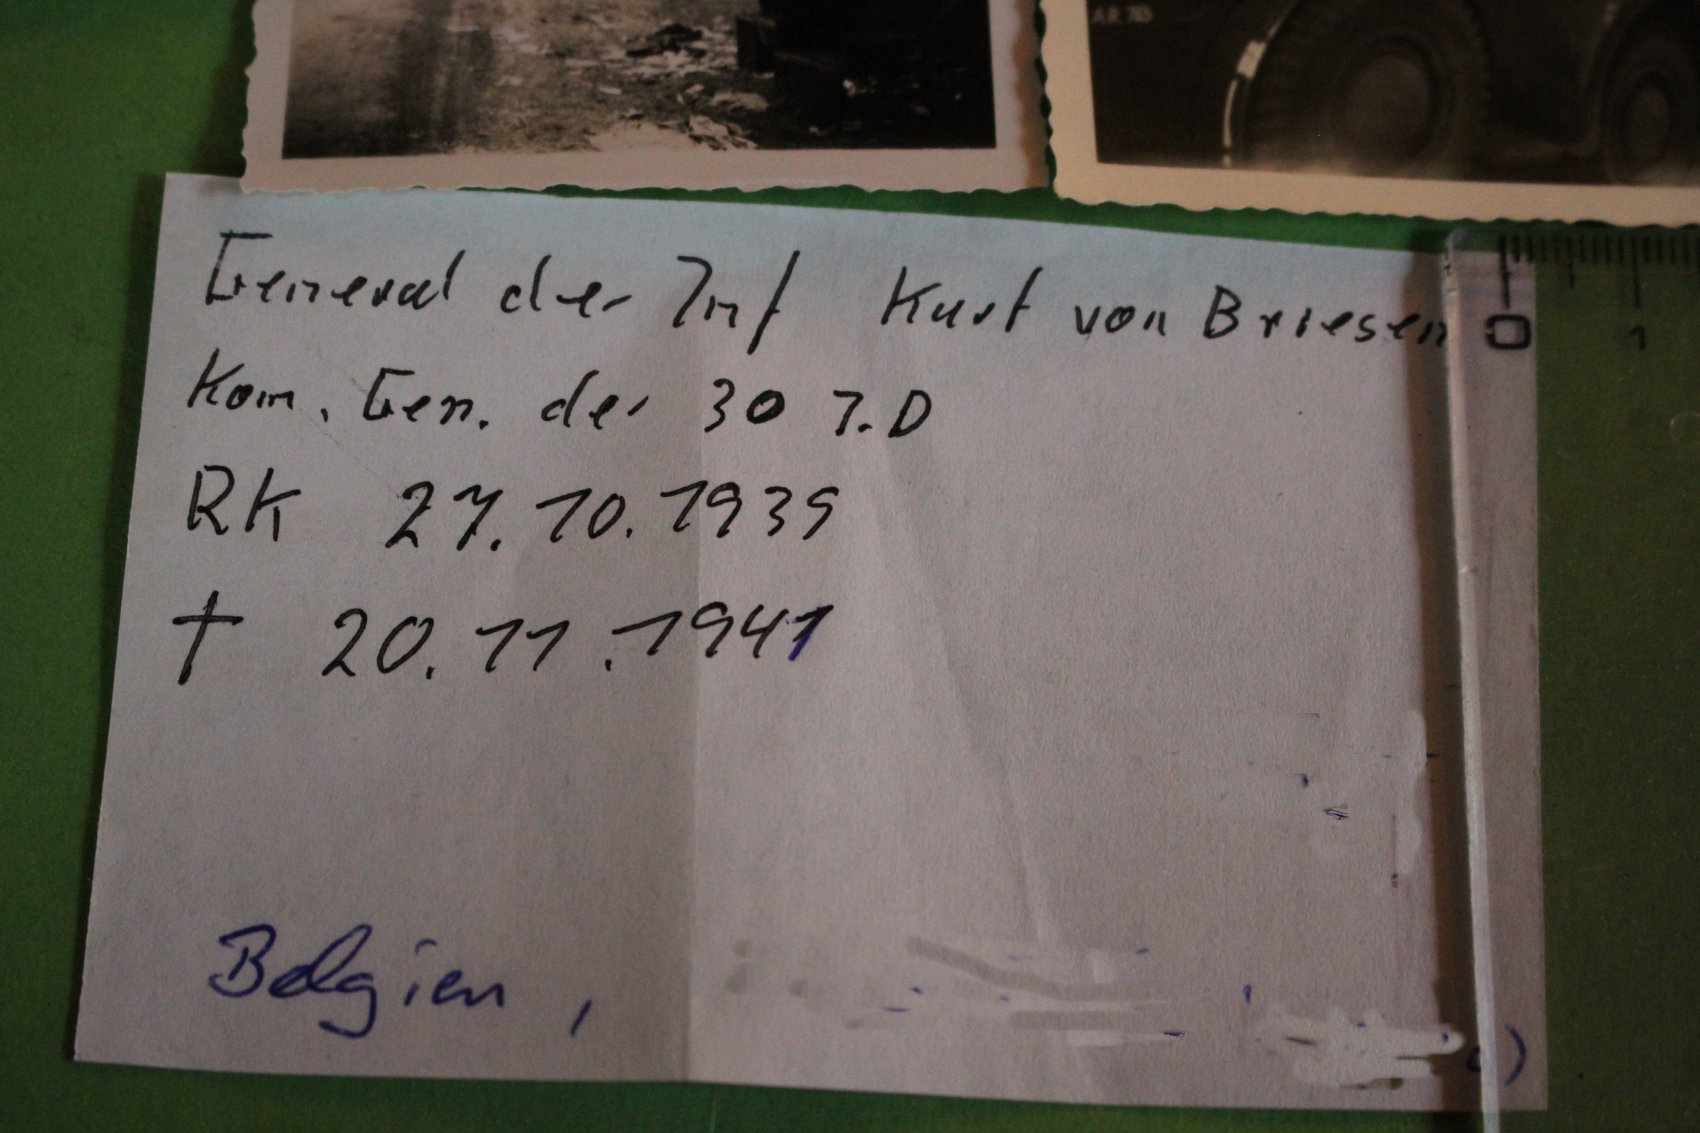 A.R. 763
General der Inf Kurt von Briesen
Kom. Gen. der 30 I.D
RK 27.10.1939
† 20.11.1941
Belgien,
0 1